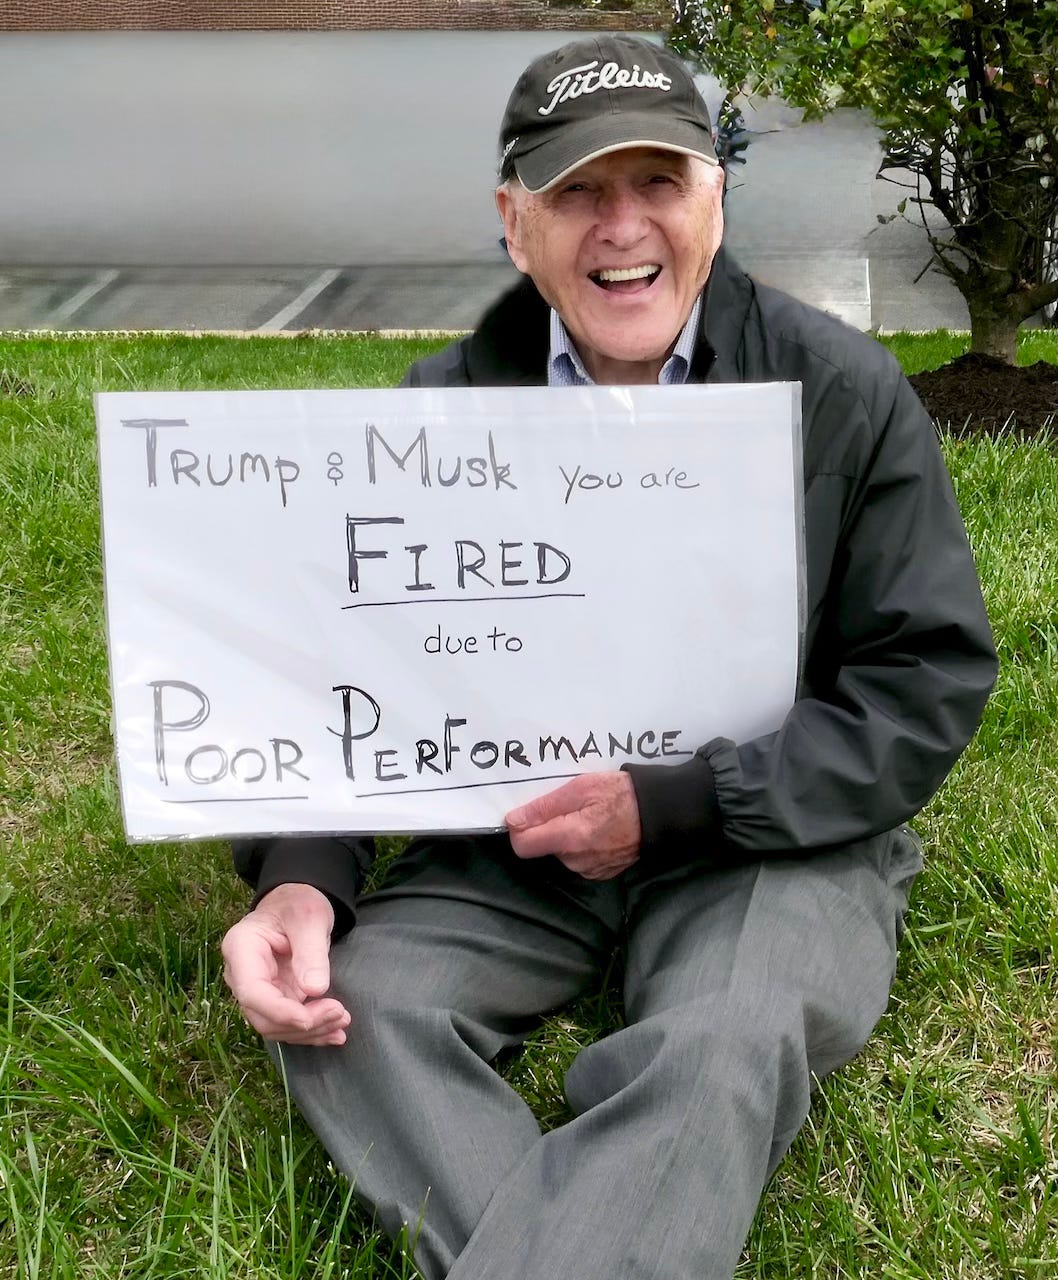 Titleist
Trump & Musk you are
FIRED
due to
Poor Performance